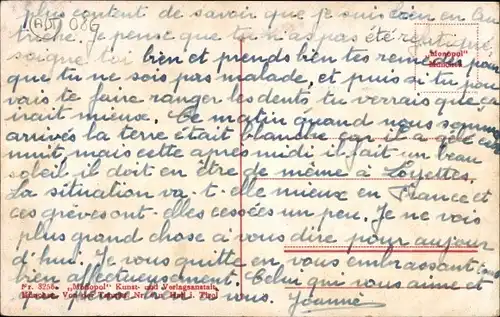 (AD) 086
plus content de savoir que je suis bien en Au
triche. Je pense que tu n'as pas été
soigne toi bien et prends bien tes remèdes pour
que tu ne sois pas malade, et puis si tu pou
vais te faire ranger les dents tu verrais que ça
irait mieux. Ce matin quand nous sommes
arrivés la terre était blanche car il a gelé cette
nuit, mais cette après midi il fait un beau
soleil il doit en être de même à Loyettes.
La situation va-t-elle mieux en France et
ces grèves ont-elles cessées un peu. Je ne vois
plus grand chose à vous dire pour aujour
d'hui. Je vous quitte en vous embrassant
bien affectueusement. Celui qui vous aime et
que pense à vous.
"Monopol"
München
Nr. 8256 "Monopol" Kunst- und Verlagsanstalt,
München. Hall i. Tirol